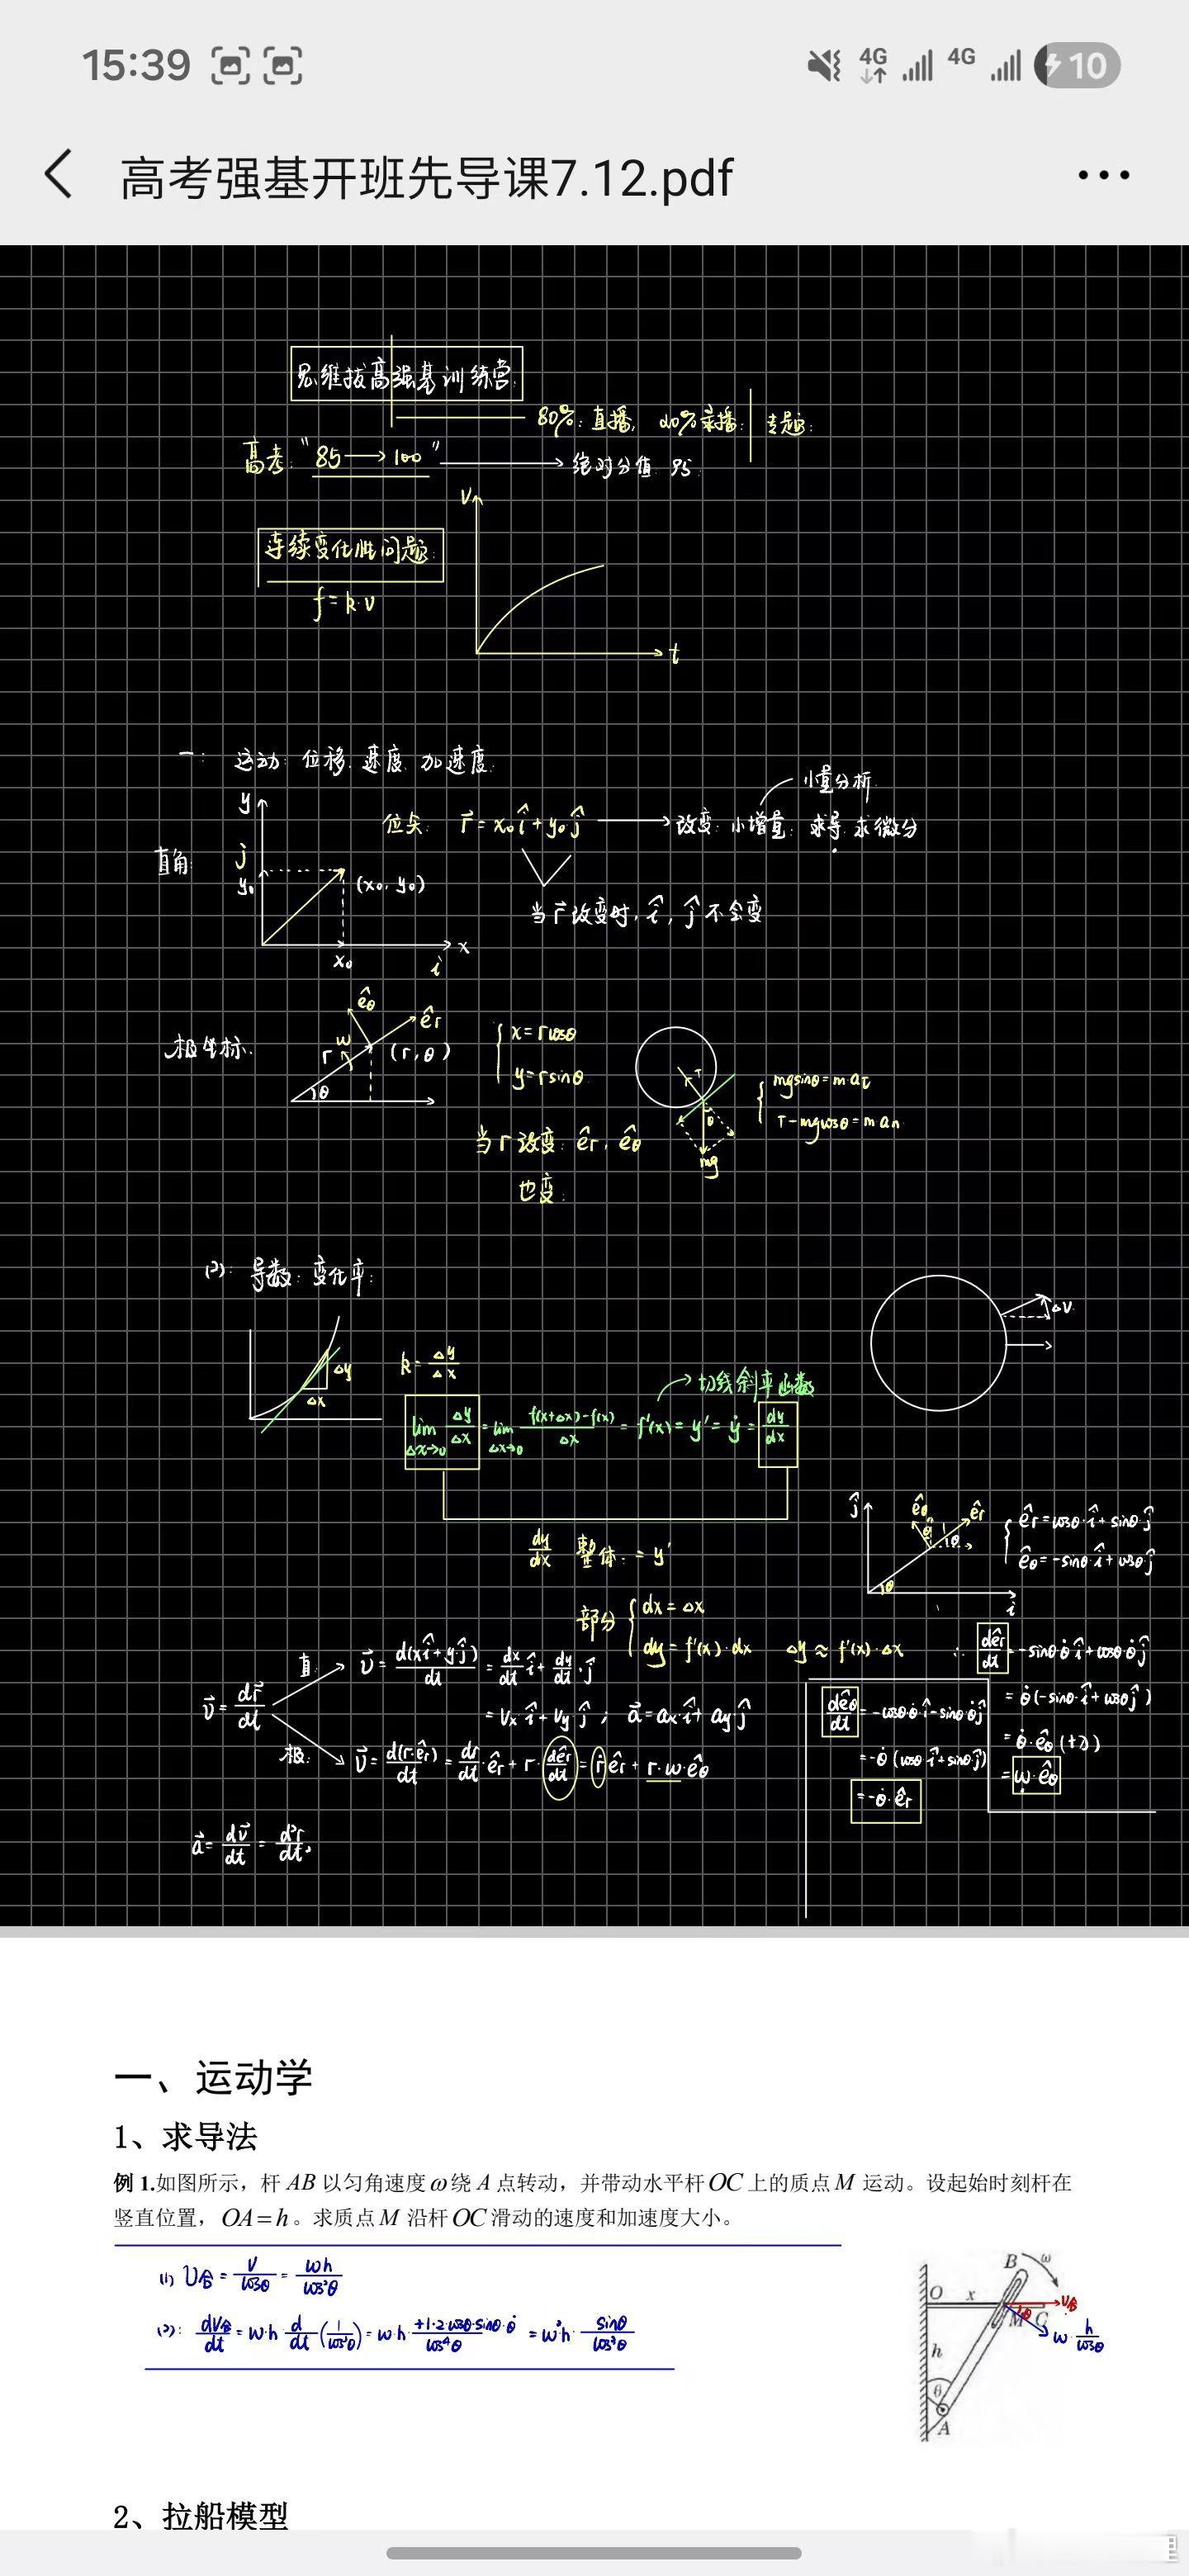 15:39
4G 4G 10
高考强基开班先导课7.12.pdf
思维拔高强基训练营
80%: 直播, 20%录播: 专题:
高考: "85→100" → 绝对分值 85
v
连续变化性问题:
f=k·v
t
一: 运动: 位移. 速度. 加速度.
小量分析
y
位矢: r⃗=x₀î+y₀ĵ → 改变: 小增量: 求导. 求微分
直角 j
y₀ (x₀, y₀)
当r⃗改变时, î, ĵ 不会变
x₀ i x
极坐标. êθ êr
r w (r, θ)
θ
{x=rcosθ
y=rsinθ
T
θ
mg
{mgsinθ=maτ
T-mgcosθ=man
当r改变: êr, êθ
也变:
(2): 导数: 变化率:
Δy
Δx
k=Δy/Δx
ΔV
→切线斜率函数
lim Δx→0 Δy/Δx = lim Δx→0 (f(x+Δx)-f(x))/Δx = f'(x)=y'=ẏ=dy/dx
dy/dx 整体: =y'
部分 {dx=Δx
dy=f'(x)·dx Δy≈f'(x)·Δx
ĵ êθ êr
θ θ 1
θ i
{êr=cosθ·î+sinθ·ĵ
êθ=-sinθ·î+cosθ·ĵ
∴ dêr/dt=-sinθ·θ̇ î+cosθ·θ̇ ĵ
=θ̇(-sinθ·î+cosθĵ)
=θ̇·êθ
=w·êθ
dêθ/dt=-cosθ·θ̇·î-sinθ·θ̇ĵ
=-θ̇(cosθ î+sinθ·ĵ)
=-θ̇·êr
v⃗=dr⃗/dt
直: v⃗=d(xî+y·ĵ)/dt=dx/dt î+dy/dt·ĵ
=vx î+vy ĵ; a⃗=ax î+ay ĵ
极: v⃗=d(r·êr)/dt=dr/dt·êr+r·dêr/dt=ṙ êr+r·w·êθ
a⃗=dv⃗/dt=d²r/dt²
一、运动学
1、求导法
例 1.如图所示，杆 AB 以匀角速度ω绕 A 点转动，并带动水平杆OC上的质点M 运动。设起始时刻杆在
竖直位置，OA=h。求质点M 沿杆OC滑动的速度和加速度大小。
(1) v合=v/cosθ=wh/cos²θ
(2): dv合/dt=w·h d/dt(1/cos²θ)=w·h·(+1·2·cosθ·sinθ·θ̇)/cos⁴θ=w²h·sinθ/cos³θ
B ω
O x v合
θ M C
w·h/cosθ
h
θ
A
2、拉船模型